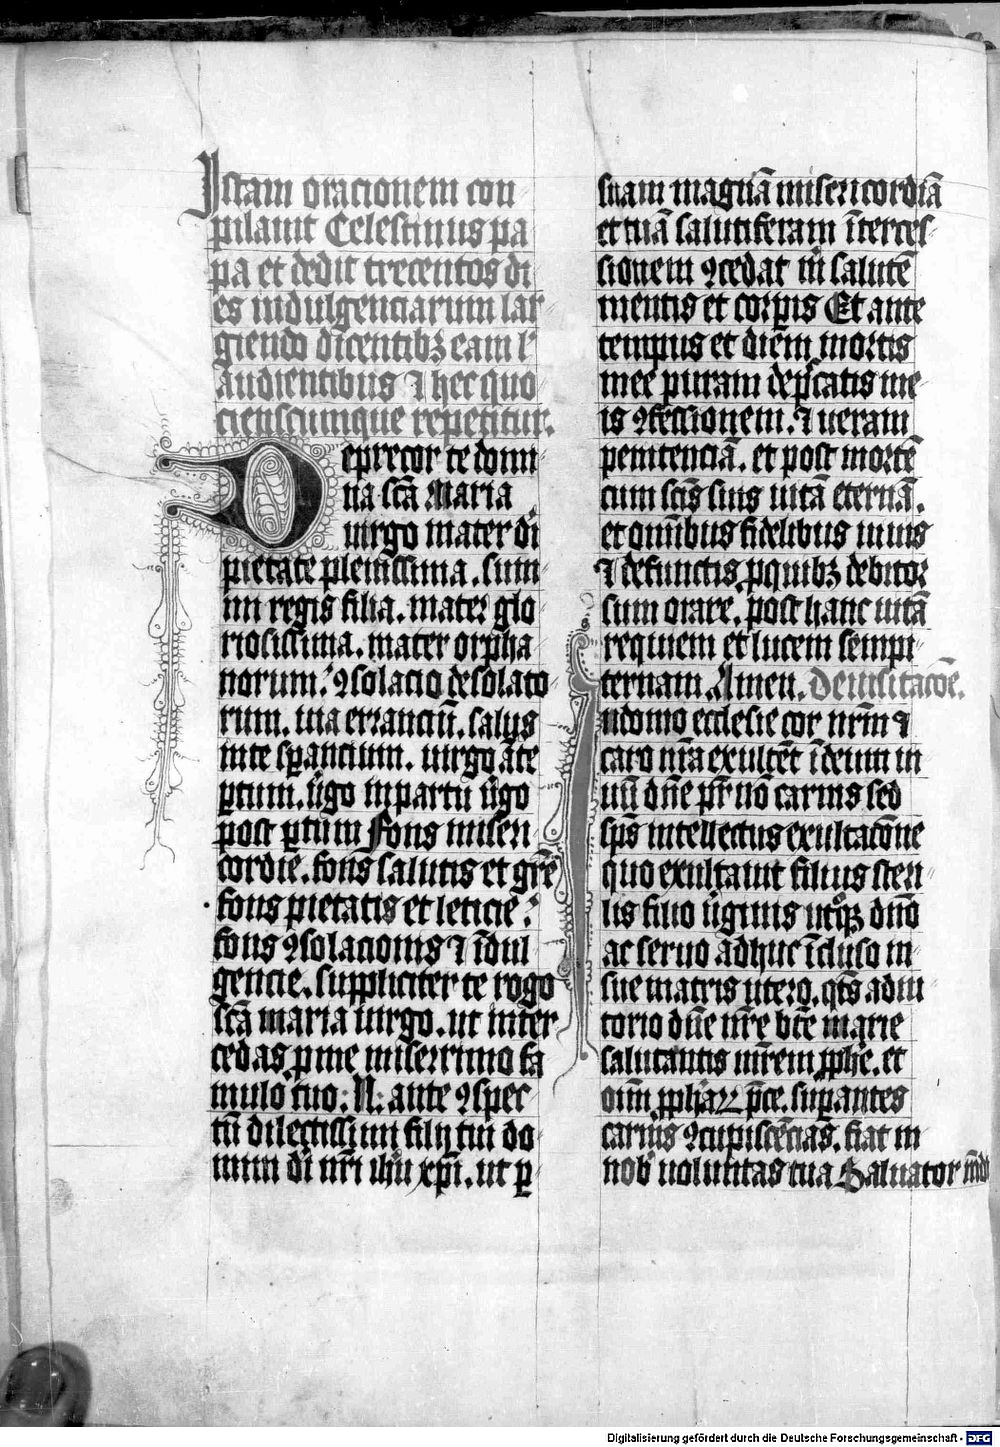 Istam oracionem con
pilauit Celestinus pa
pa et dedit trecentos di
es indulgenciarum lar
giendo dicentibꝫ eam l'
audientibus ⁊ hec quo
cienscumque repetitur.
Deprecor te domi
na sc̄a Maria
uirgo mater di
pietate plenissima. sum
mi regis filia. mater glo
riosissima. mater orpha
norum. ꝯsolacio desolato
rum. uia erranciū. salus
in te sꝑancium. uirgo āte
ꝑtum. ūgo in partu ūgo
post ꝑtum Fons miseri
cordie. fons salutis et gr̄e
fons pietatis et leticie.
fons ꝯsolacionis ⁊ īdul
gencie. suppliciter te rogo
sc̄a maria uirgo. ut inter
cedas ꝑ me miserrimo fa
mulo tuo: N: ante ꝯspec
tū dilectissimi filij tui do
mini di nr̄i ihū xp̄i. ut ꝑ
suam magnā misericordiā
et tuā salutiferam īterces
sionem ꝯcedat m̄ salutē
mentis et corꝑis Et ante
tempus et diem mortis
mee puram de pc̄catis me
is ꝯfessionem. ⁊ ueram
penitenciā. et post mortē
cum sc̄is suis uitā eternā.
et om̄ibus fidelibus uiuis
⁊ defunctis ꝓ quibꝫ debitor
sum orare. post hanc uitā
requiem et lucem sempi
ternam. Amen. De uisitacōe.
In domo ecclesie cor nr̄m ⁊
caro nr̄a exultēt ī deum ui
uū dn̄e pr̄ nō carnis sed
sp̄s intellectus exultacōne
quo exultauit filius steri
lis filio ūginis utqꝫ dn̄o
ac seruo adhuc īcluso in
sue matris utero. qs̄ adiu
torio dn̄e nr̄e bt̄e marie
salutantis mr̄em ꝓphe. et
oīm ꝓpharꝝ pc̄e. suꝑantes
carnis ꝯcupiscēcias. fiat in
nob' uoluntas tua Saluator mdi
Digitalisierung gefördert durch die Deutsche Forschungsgemeinschaft - DFG